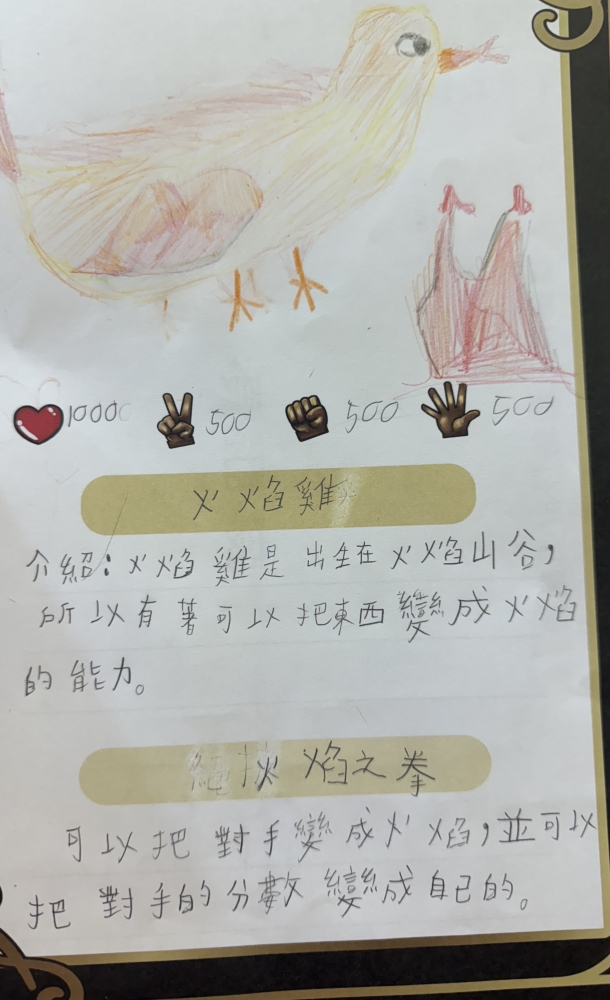 1000 500 500 500
火焰雞
介紹：火焰雞是出生在火焰山谷，
所以有著可以把東西變成火焰
的能力。
火焰之拳
可以把對手變成火焰，並可以
把對手的分數變成自己的。